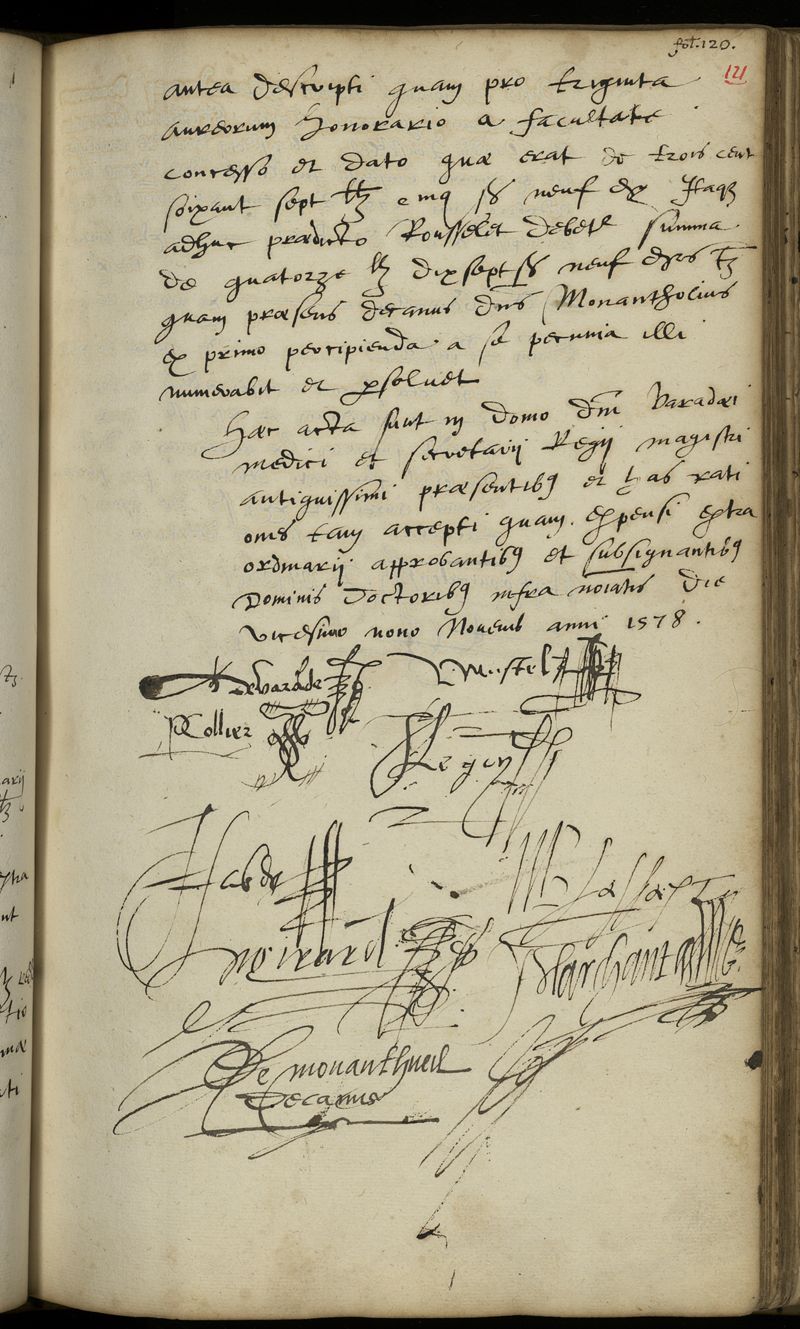 fol. 120.
121
antea descripti quam pro triginta
aureorum honorario a facultate
concesso et dato quæ erat de trois cent
soixant sept lt cinq s neuf Itaq
adhuc prædicto Rousselet debet summa
de quatorze lt dix sept s neuf
quam præsens decanus dns Monantholius
ex primo percipienda a se pecunia illi
numerabit et psoluet
Hæc acta sunt in domo dni Varadæi
medici et secretarij Regij magistri
antiquissimi præsentibq et has rati
ones tam accepti quam expensi extra
ordinarij approbantibq et subsignantibq
Dominis Doctoribq infra noiatis die
vicesimo nono Novemb anni 1578.
de varade
P Collier
Le gay
Marchant
De monantheuil
Decanus